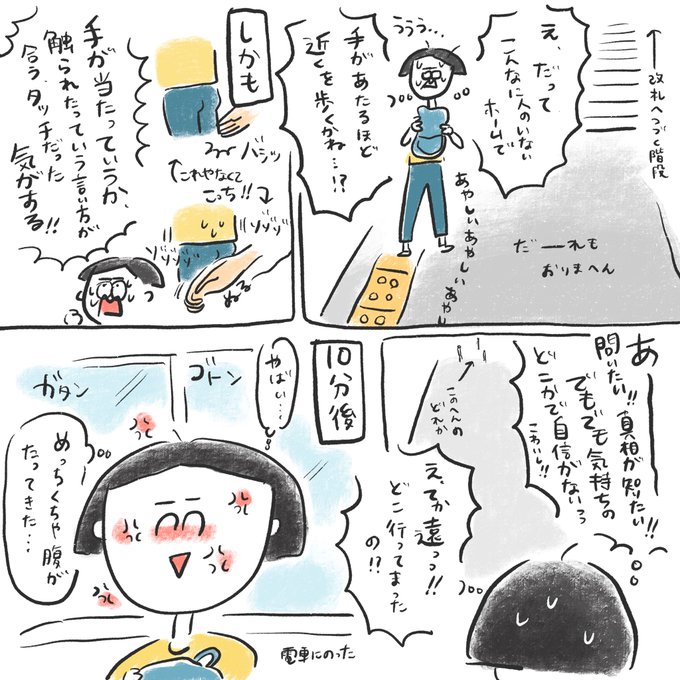 え、だって
こんなに人のいない
ホームで
手があたるほど
近くを歩くかね…!?
ううう…
↑改札へつづく階段
だーれも
おりまへん
あやしいあやしいあやし
しかも
手が当たっていうか、
触られたっていう言い方が
合う、タッチだった
気がする!!
バシッ
↑これやなくて
こっち!!↓
ゾゾゾゾ
ゾゾゾ
ぬる
あ
問いたい!!真相が知りたい!!
でもでも気持ちの
どこかで自信がないっっ
こわいし!!
このへんの
どれか
え、てか遠っっ!!
どこ行ってまった
の!?
10分後
やばい…
ガタン
ゴトン
めっちくちゃ腹が
たってきた…
電車にのった